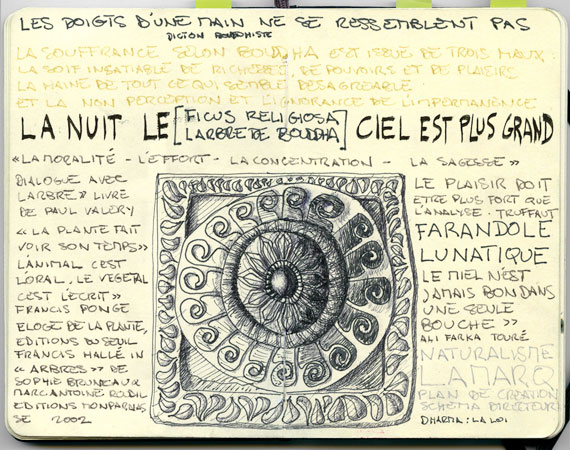 LES DOIGTS D'UNE MAIN NE SE RESSEMBLENT PAS
DICTON BOUDDHISTE
LA SOUFFRANCE SELON BOUDDHA EST ISSUE DE TROIS MAUX
LA SOIF INSATIABLE DE RICHESSES, DE POUVOIRS ET DE PLAISIRS
LA HAINE DE TOUT CE QUI SEMBLE DESAGREABLE
ET LA NON PERCEPTION ET L'IGNORANCE DE L'IMPERMANENCE
LA NUIT LE [FICUS RELIGIOSA L'ARBRE DE BOUDDHA] CIEL EST PLUS GRAND
« LA MORALITÉ - L'EFFORT - LA CONCENTRATION - LA SAGESSE »
DIALOGUE AVEC
L'ARBRE » LIVRE
DE PAUL VALÉRY
« LA PLANTE FAIT
VOIR SON TEMPS »
L'ANIMAL C'EST
L'ORAL. LE VEGETAL
C'EST L'ÉCRIT »
FRANCIS PONGE
ELOGE DE LA PLANTE,
EDITIONS DU SEUIL
FRANCIS HALLÉ IN
« ARBRES » DE
SOPHIE BRUNEAU &
MARC ANTOINE ROUDIL
EDITIONS MONTPARNAS
SE 2002
LE PLAISIR DOIT
ETRE PLUS FORT QUE
L'ANALYSE. TRUFFAUT
FARANDOLE
LUNATIQUE
LE MIEL N'EST
JAMAIS BON DANS
UNE SEULE
BOUCHE »
ALI FARKA TOURÉ
NATURALISME
LAMARQ
PLAN DE CREATION
SCHEMA DIRECTEUR
DHARMA : LA LOI